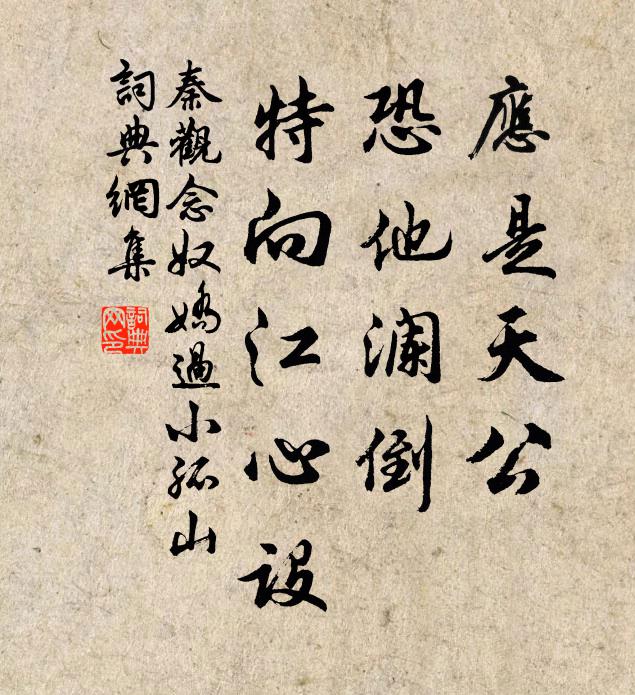 應是天公
恐他澜倒
特向江心設
秦觀念奴嬌過小孤山
詞典網集
詞典
网印